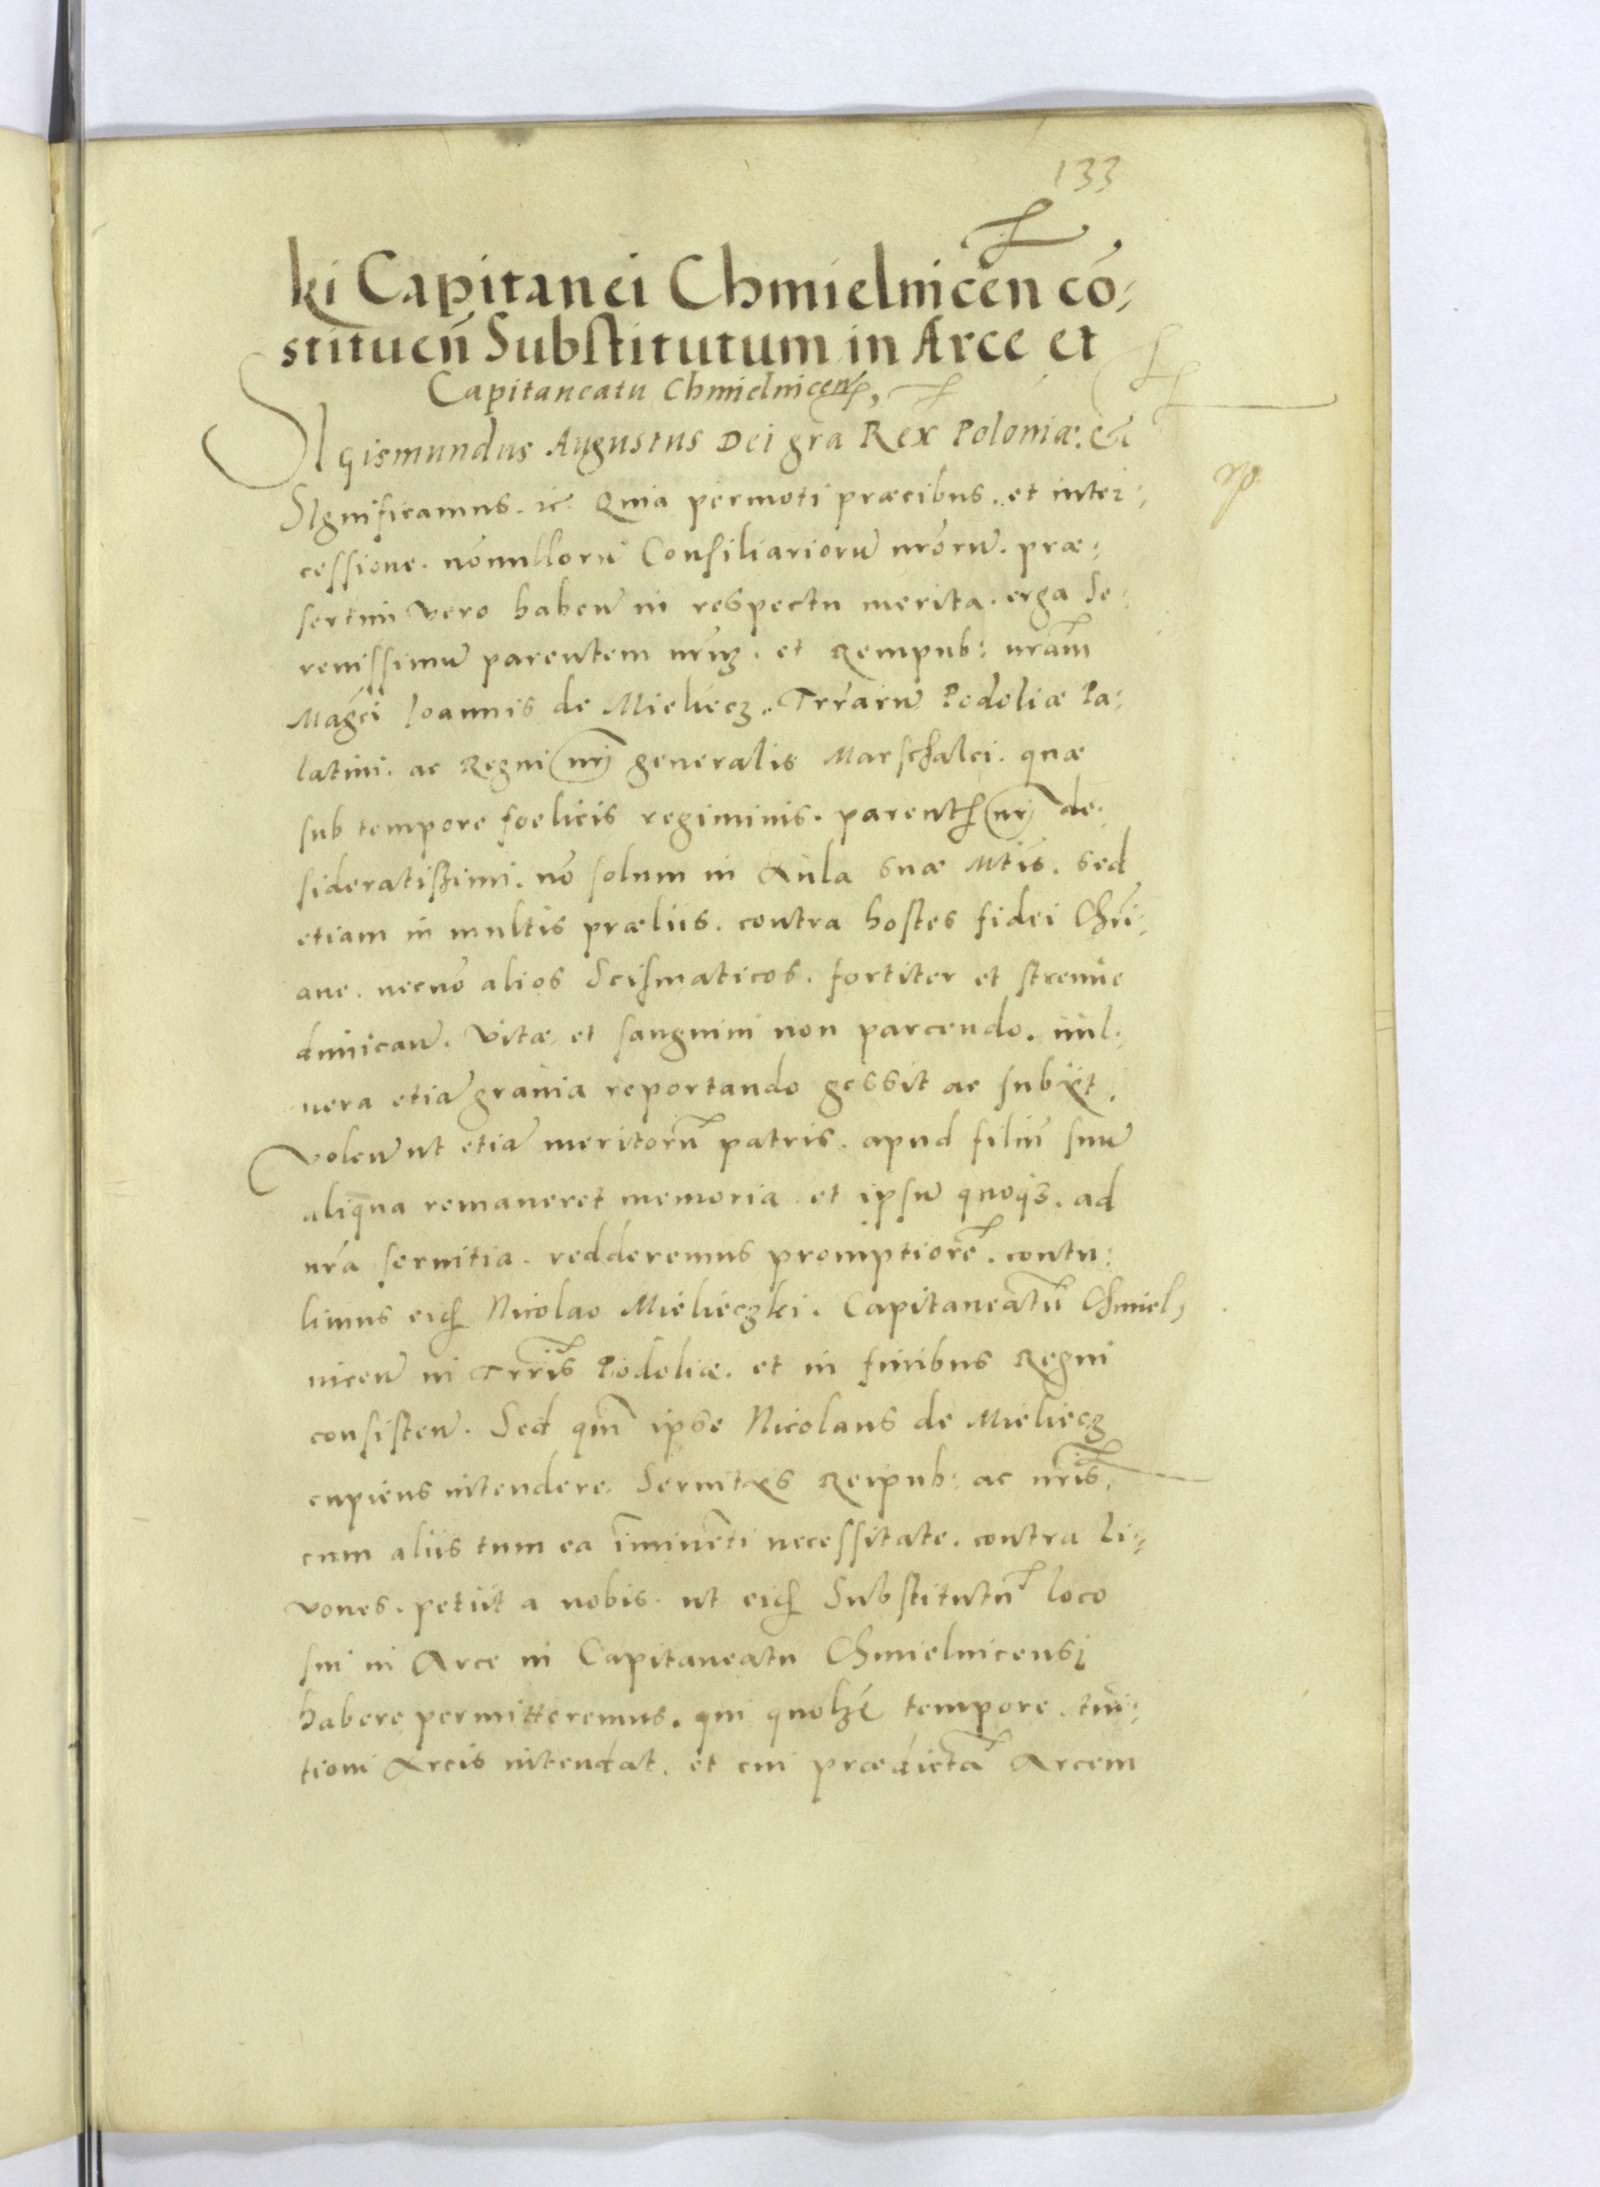 133
ki Capitanei Chmielnicen̄ co-
stituen̄ Substitutum in Arce et
Capitaneatu Chmielnicen̄,
SIgismundus Augustus Dei gr̄a Rex Poloniæ: &c
SIgnificamus. ꝛc̄. Quia permoti præcibus. et inter:
cessione. nōnullorū Consiliariorū nr̄orū. præ:
sertim vero haben̄ in respectu merita. erga Se:
renissimū parentem nr̄m̄. et Rempub: nr̄am
Maḡci Ioannis de Mieliecz. Tr̄rarū Podoliæ Pa:
latini. ac Regni nr̄i generalis Marschalci. quæ
sub tempore foelicis regiminis. parentis nr̄i de:
sideratißimi. nō solum in Aula suæ Mtīs. sed
etiam in multis præliis. contra hostes fidei Chr̄i:
ane. necnō alios Scismaticos. fortiter et strenue
dimican̄. vitæ et sanguini non parcendo. uul:
nera etiā grauia reportando gessit ac subiit.
Volen̄ ut etiā meritorū patris. apud filiū suū
aliqua remaneret memoria et ipsū quoqȝ. ad
nr̄a seruitia. redderemus promptiorē. contu:
limus eidem Nicolao Mielieczki. Capitaneatū Chmiel,
nicen̄ in Tr̄ris Podoliæ. et in finibus Regni
consisten̄. Sed qm̄ ipse Nicolaus de Mieliecz
cupiens intendere. Seruitiis Reipub: ac nr̄is.
cum aliis tum ea īminēti necessitate. contra Li:
vones. petiit a nobis. ut eidem Substitutū loco
sui in Arce in Capitaneatu Chmielnicensi
habere permitteremus. qui quolȝet tempore. tui:
tioni Arcis intendat. et cui prædictā Arcem